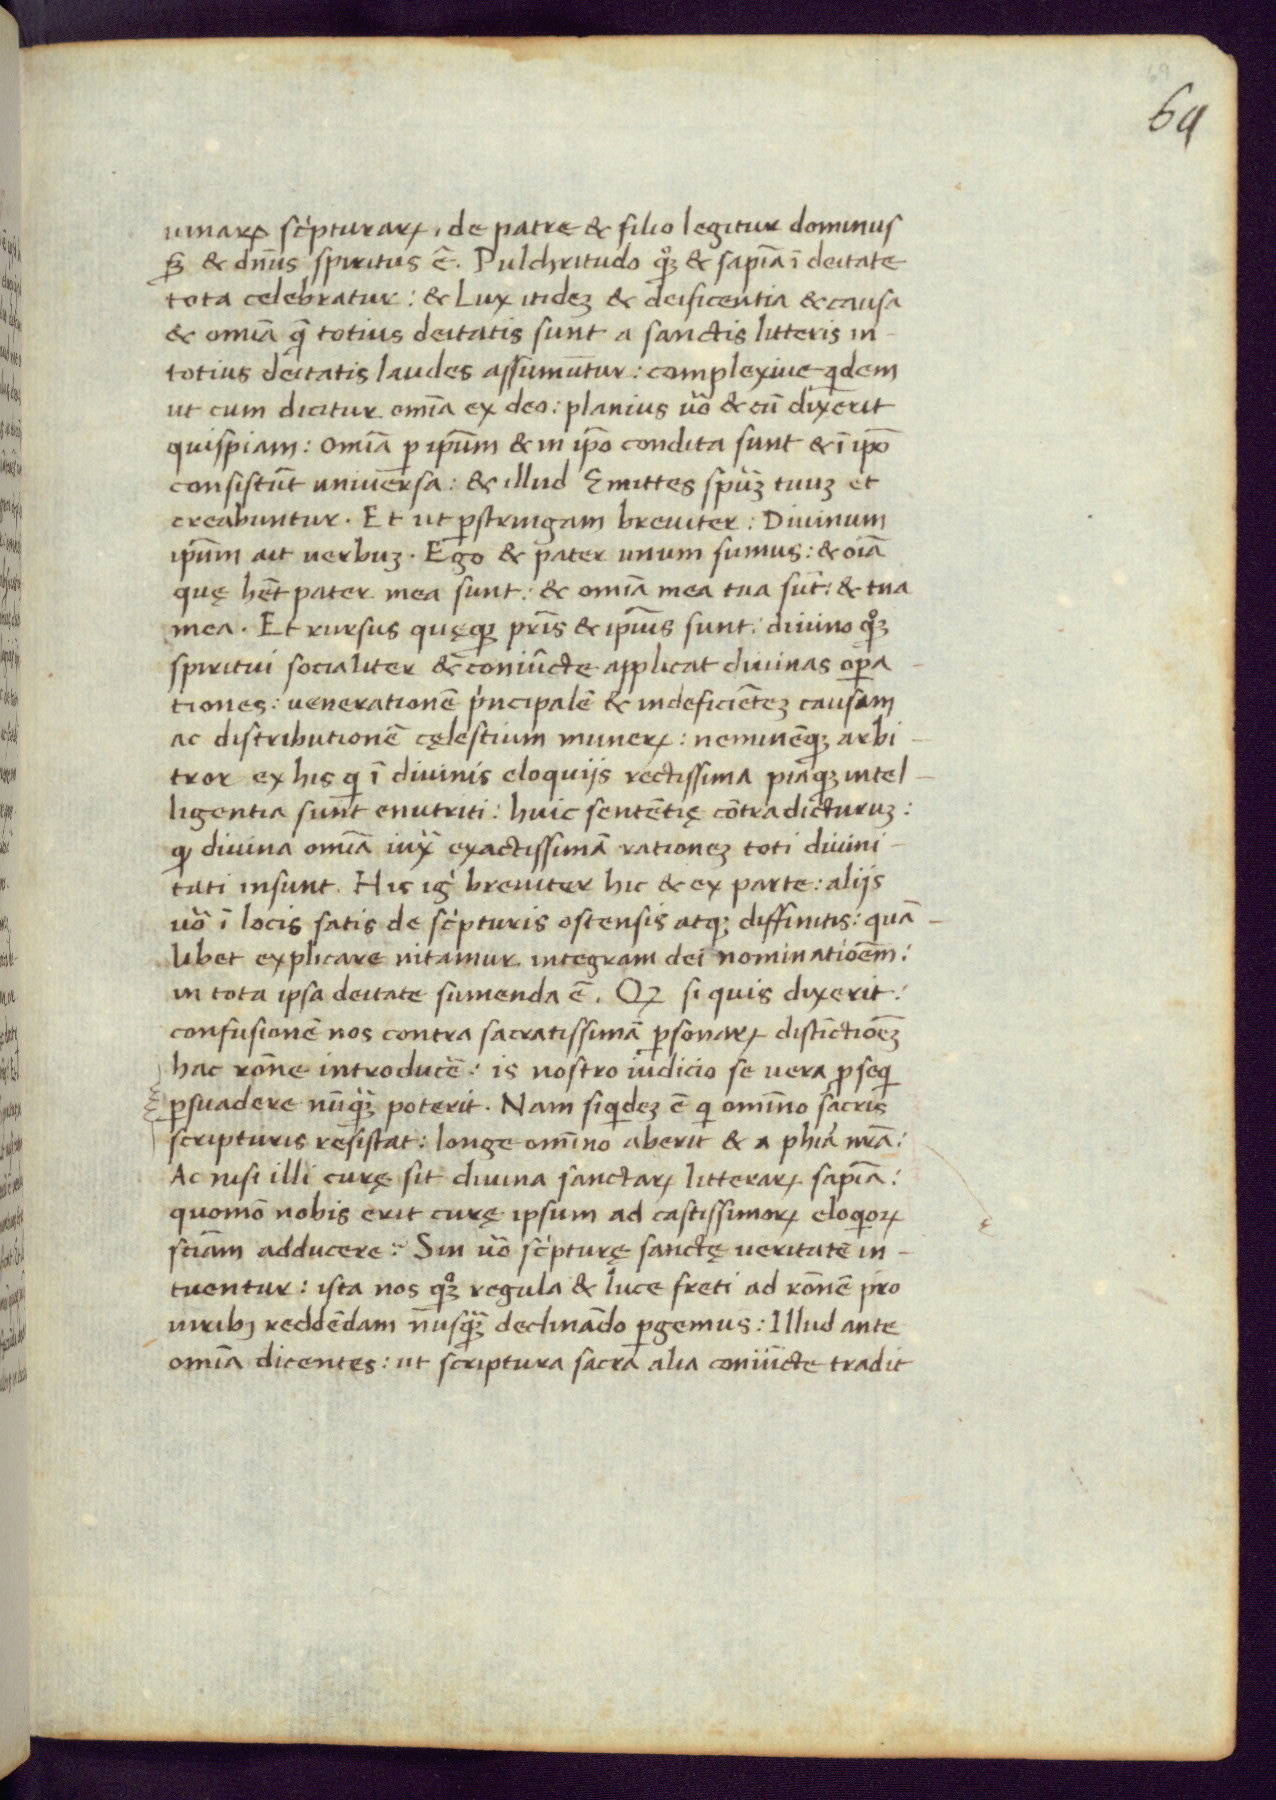 69
uinaꝝ sc̓pturaꝝ, de patre & filio legitur dominus
Sꝫ & dn̄us spiritus ē. Pulchritudo qͦꝫ & sapīa ī deitate
tota celebratur: & Lux itideꝫ & deificentia & causa
& omīa q̄ totius deitatis sunt a sanctis litteris in-
totius deitatis laudes assumūtur: complexiue qdem
ut cum dicitur omīa ex deo: planius uō & cū dixerit
quispiam: Omīa ꝑ ip̄um & in ip̄o condita sunt & ī ip̄o
consistūt uniuersa: & illud Emittes sp̄uꝫ tuuꝫ et
creabuntur. Et ut ꝑstringam breuiter: Diuinum
ip̄um ait uerbuꝫ. Ego & pater unum sumus: & oīa
quę hēt pater mea sunt: & omīa mea tua sūt: & tua
mea. Et rursus quęqꝫ pr̄is & ip̄ius sunt: diuino qͦꝫ
spiritui socialiter & coniūcte applicat diuinas oꝑa-
tiones: uenerationē p̓ncipalē & indeficiēteꝫ causam
ac distributionē cęlestium muneꝝ: neminēqꝫ arbi-
tror ex his q̓ ī diuinis eloquijs rectissima piaqꝫ intel-
ligentia sunt enutriti: huic sentētię cōtradicturuꝫ:
ꝙ diuina omīa iux̄ exactissimā rationeꝫ toti diuini-
tati insunt. His ig̓ breuiter hic & ex parte: alijs
uō ī locis satis de sc̓pturis ostensis atqꝫ diffinitis: quā-
libet explicare nitamur integram dei nominatiōem:
in tota ipsa deitate sumenda ē. Qꝫ si quis dixerit:
confusionē nos contra sacratissimā ꝑsonaꝝ distīctiōeꝫ
hac rōne introducē: is nostro iudicio se uera ꝓseq̓
ꝑsuadere nūqꝫ poterit. Nam siqdeꝫ ē q̓ omīno sacris
scripturis resistat: longe omīno aberit & a phīa nr̄a:
Ac nisi illi curę sit diuina sanctaꝝ litteraꝝ sapīa:
quomō nobis erit curę ipsum ad castissimoꝝ eloqoꝝ
sciām adducere: Sin uō sc̓pturę sanctę ueritatē in-
tuentur: ista nos qͦꝫ regula & luce freti ad rōnē pro
uiribꝫ reddēdam nūsqꝫ declinādo ꝑgemus: Illud ante
omīa dicentes: ut scriptura sacra alia coniūcte tradit